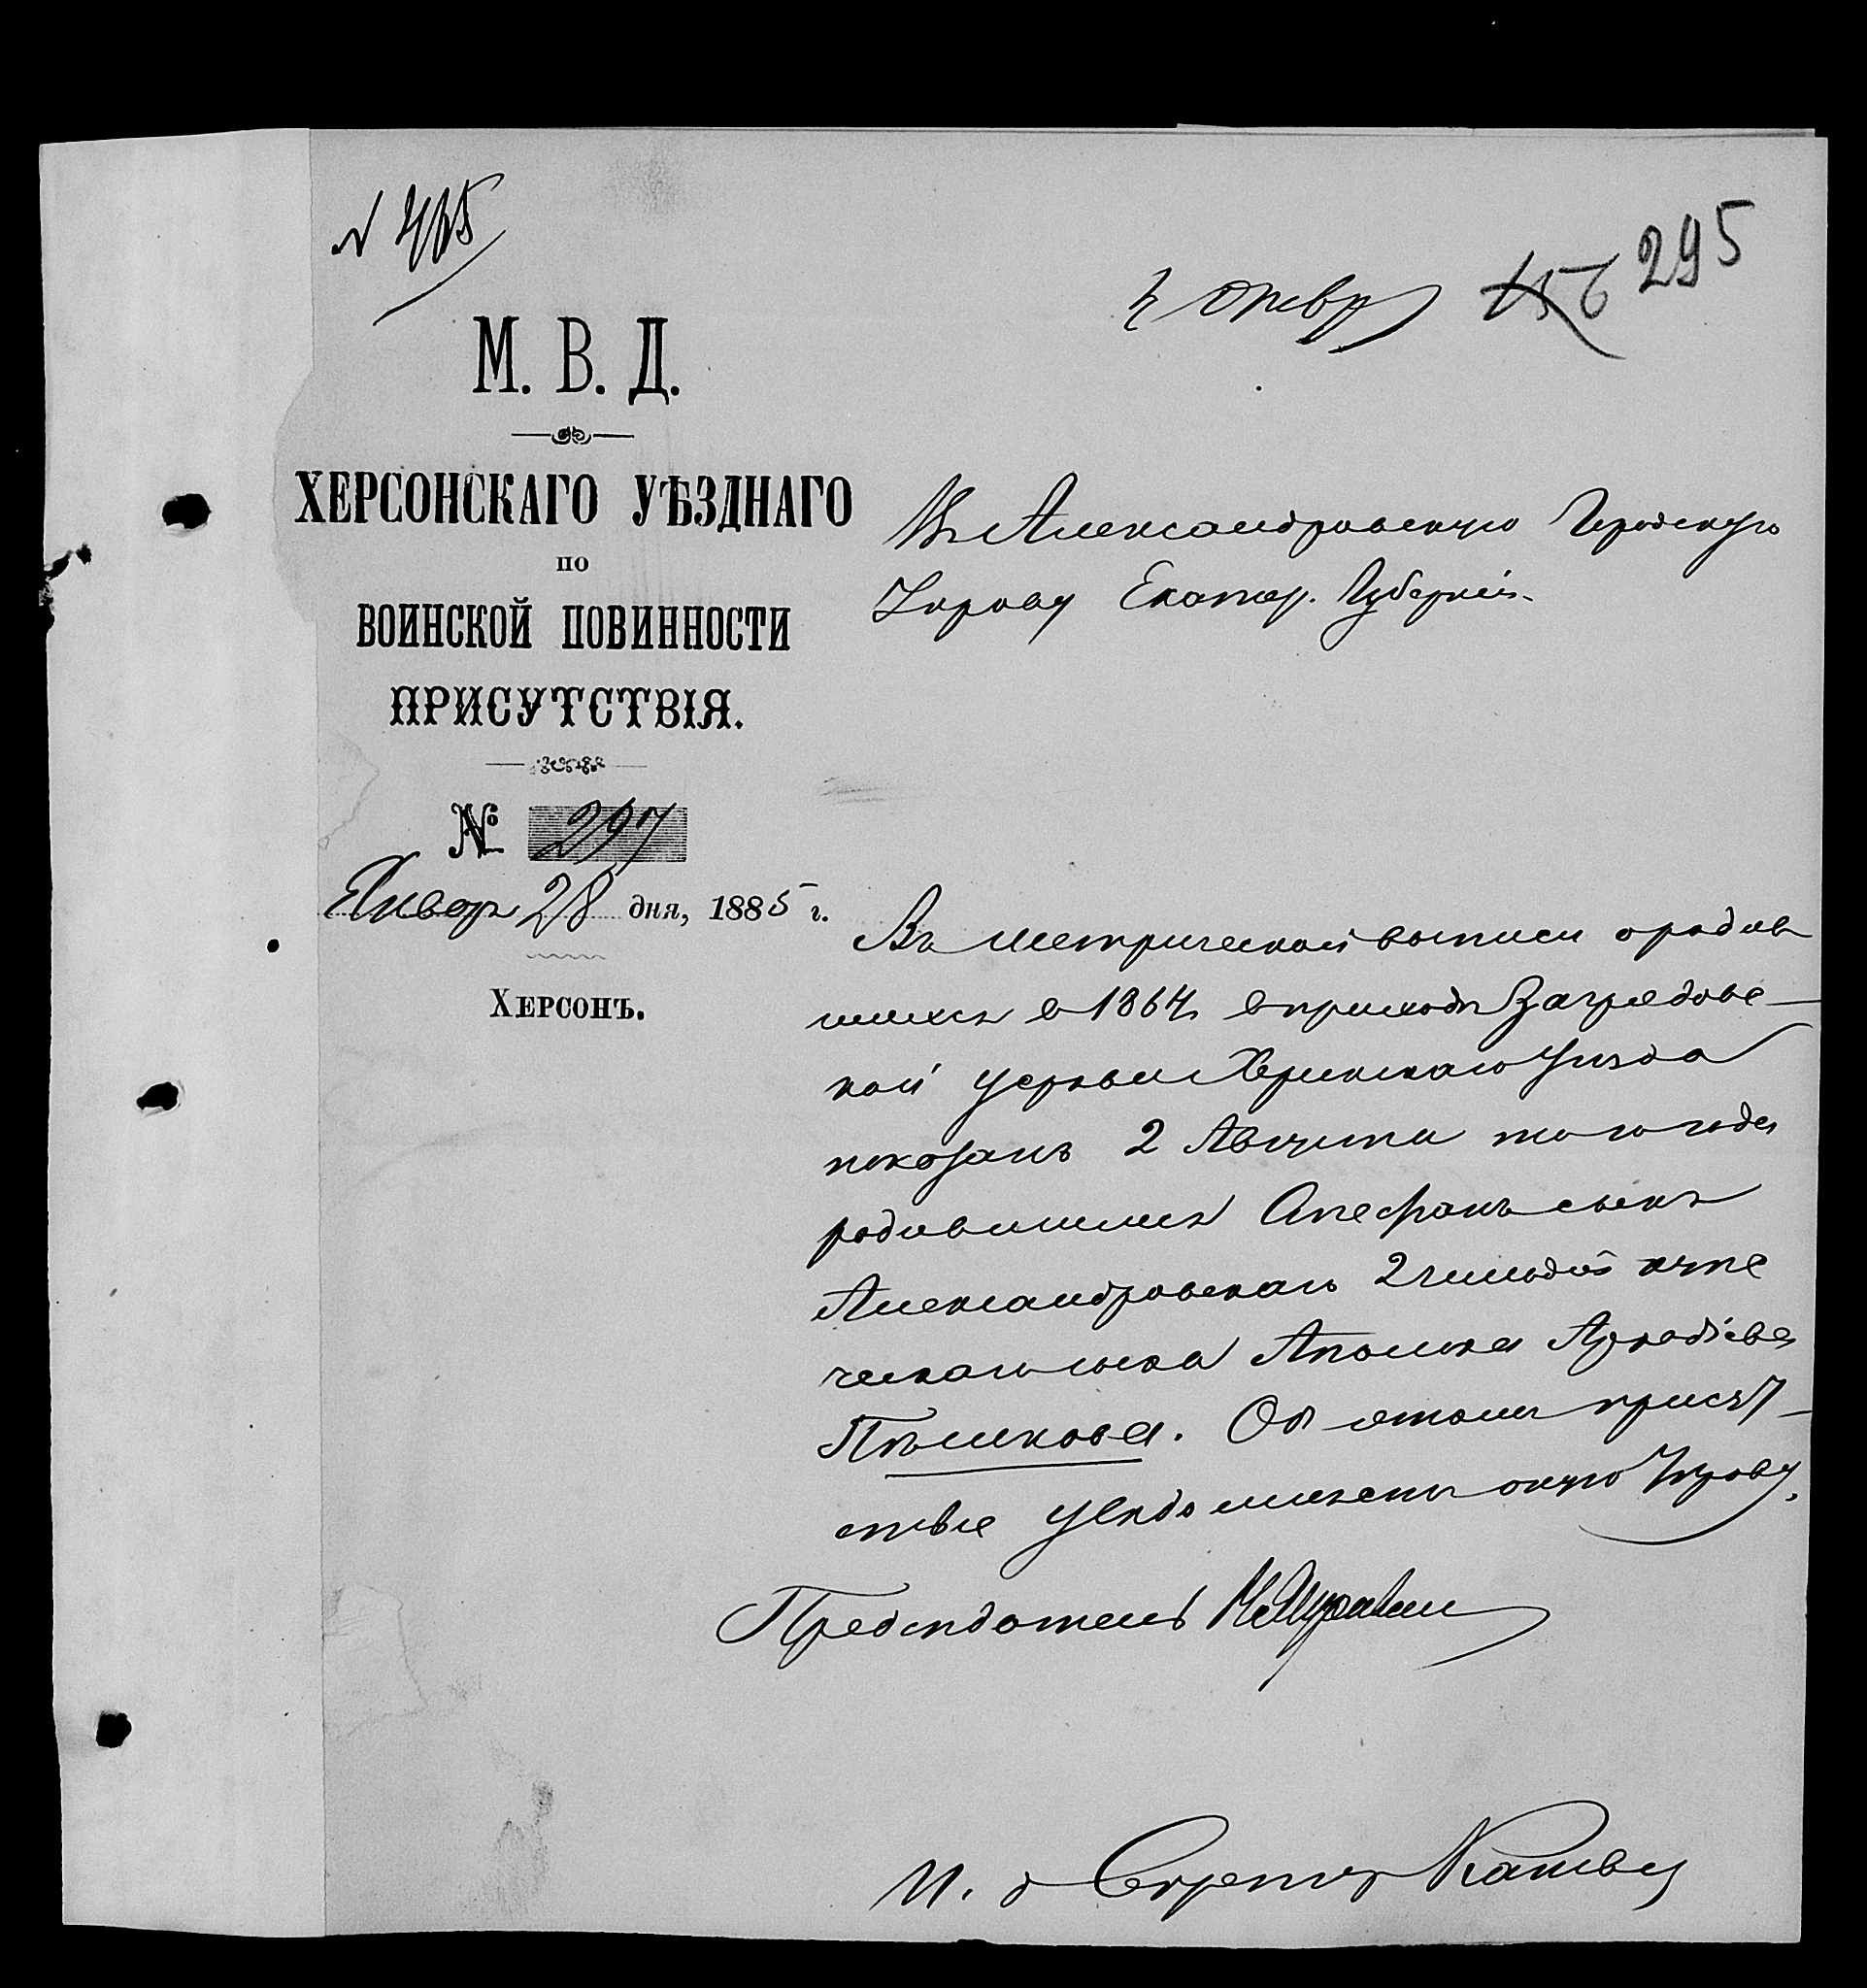 295
М. В. Д.
ХЕРСОНСКАГО УѢЗДНАГО
ПО
ВОИНСКОЙ ПОВИННОСТИ
ПРИСУТСТВІЯ.
№ 297
Январ 28 дня, 1885 г.
ХЕРСОНЪ.
Въ Александровскую Городскую
Управу Екатер. Губерніи.
Въ метрической выписи о родив
шихся в 1864 г. в приходѣ Заградовс—
кой церкви Херсонскаго уѣзда
показанъ 2 Августа того года
родившимся сынъ
Александровскаго 2 гильдіи купе
ческаго сына Аркадіева
Пѣшкова. Объ этомъ присут—
ствіе увѣдомляетъ Управу.
Предсѣдатель
И. д Секретар